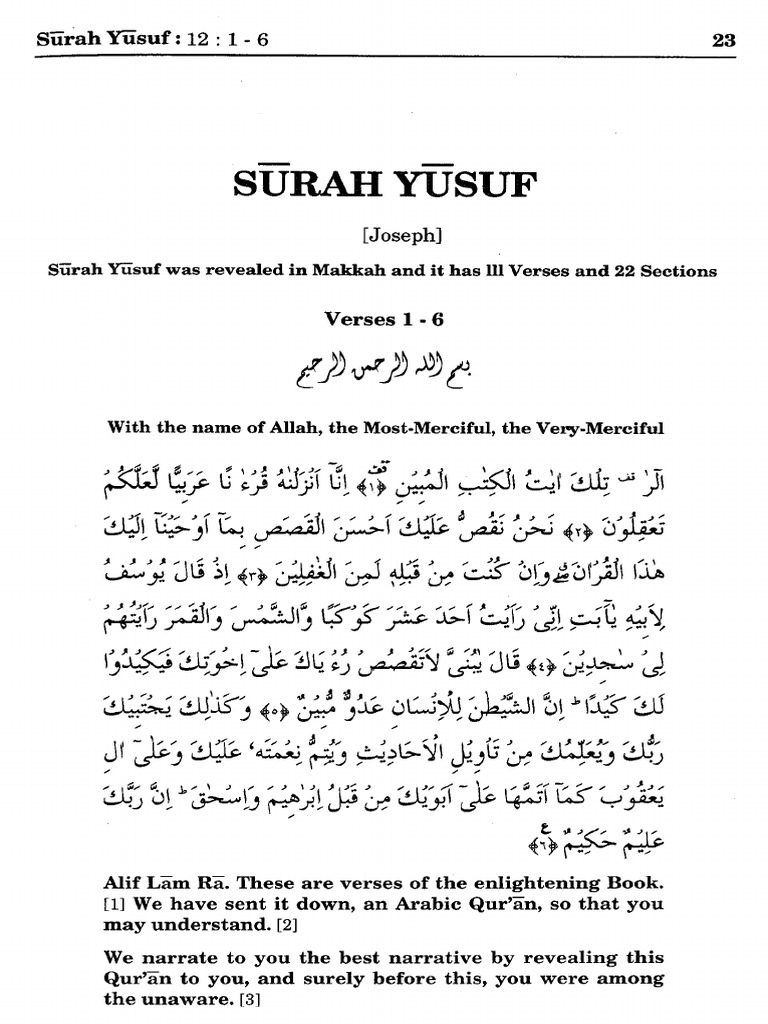 Sūrah Yūsuf : 12 : 1 - 6 23
SŪRAH YŪSUF
[Joseph]
Sūrah Yūsuf was revealed in Makkah and it has lll Verses and 22 Sections
Verses 1 - 6
بسم الله الرحمن الرحيم
With the name of Allah, the Most-Merciful, the Very-Merciful
الٓرٰ ۟ تِلْكَ اٰيٰتُ الْكِتٰبِ الْمُبِيْنِ ﴿١﴾ اِنَّآ اَنْزَلْنٰهُ قُرْءٰ نًا عَرَبِيًّا لَّعَلَّكُمْ
تَعْقِلُوْنَ ﴿٢﴾ نَحْنُ نَقُصُّ عَلَيْكَ اَحْسَنَ الْقَصَصِ بِمَآ اَوْحَيْنَآ اِلَيْكَ
هٰذَا الْقُرْاٰنَ وَاِنْ كُنْتَ مِنْ قَبْلِهٖ لَمِنَ الْغٰفِلِيْنَ ﴿٣﴾ اِذْ قَالَ يُوْسُفُ
لِاَبِيْهِ يٰٓاَبَتِ اِنِّىْ رَاَيْتُ اَحَدَ عَشَرَ كَوْكَبًا وَّالشَّمْسَ وَالْقَمَرَ رَاَيْتُهُمْ
لِىْ سٰجِدِيْنَ ﴿٤﴾ قَالَ يٰبُنَىَّ لَاتَقْصُصْ رُءْ يَاكَ عَلٰٓى اِخْوَتِكَ فَيَكِيْدُوْا
لَكَ كَيْدًا ؕ اِنَّ الشَّيْطٰنَ لِلْاِنْسَانِ عَدُوٌّ مُّبِيْنٌ ﴿٥﴾ وَكَذٰلِكَ يَجْتَبِيْكَ
رَبُّكَ وَيُعَلِّمُكَ مِنْ تَاْوِيْلِ الْاَحَادِيْثِ وَيُتِمُّ نِعْمَتَهٗ عَلَيْكَ وَعَلٰٓى اٰلِ
يَعْقُوْبَ كَمَآ اَتَمَّهَا عَلٰٓى اَبَوَيْكَ مِنْ قَبْلُ اِبْرٰهِيْمَ وَاِسْحٰقَ ؕ اِنَّ رَبَّكَ
عَلِيْمٌ حَكِيْمٌ ﴿٦﴾
Alif Lām Rā. These are verses of the enlightening Book.
[1] We have sent it down, an Arabic Qur'ān, so that you
may understand. [2]
We narrate to you the best narrative by revealing this
Qur'ān to you, and surely before this, you were among
the unaware. [3]